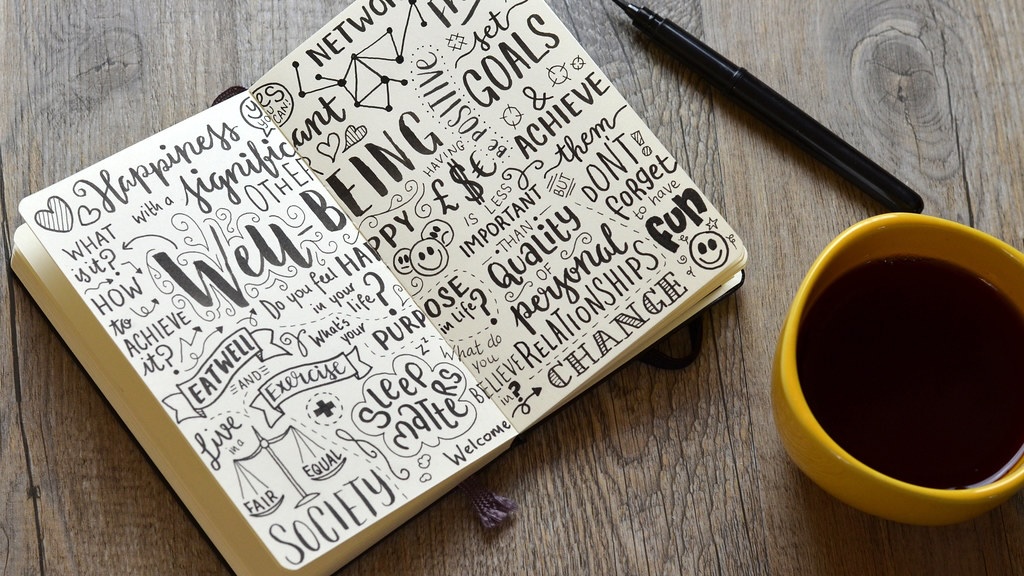 yes
you
CAN!
Happiness
with a significant
OTHER
WHAT
is it?
HOW
to
ACHIEVE
it?
Well-BEING
Do you feel HAPPY
in your life?
What's
your PURPOSE
in life?
EATWELL!
AND
Exercise
Sleep
Matters
Live
in a
FAIR
EQUAL
SOCIETY
Welcome
CHANGE
NETWORK
HAVING
POSITIVE
set
GOALS
&
ACHIEVE
them
£$€
IS LESS
IMPORTANT
THAN
Quality
OF
personal
RELATIONSHIPS
BUT
DON'T
forget
to have
fun
What do
you
BELIEVE
in?